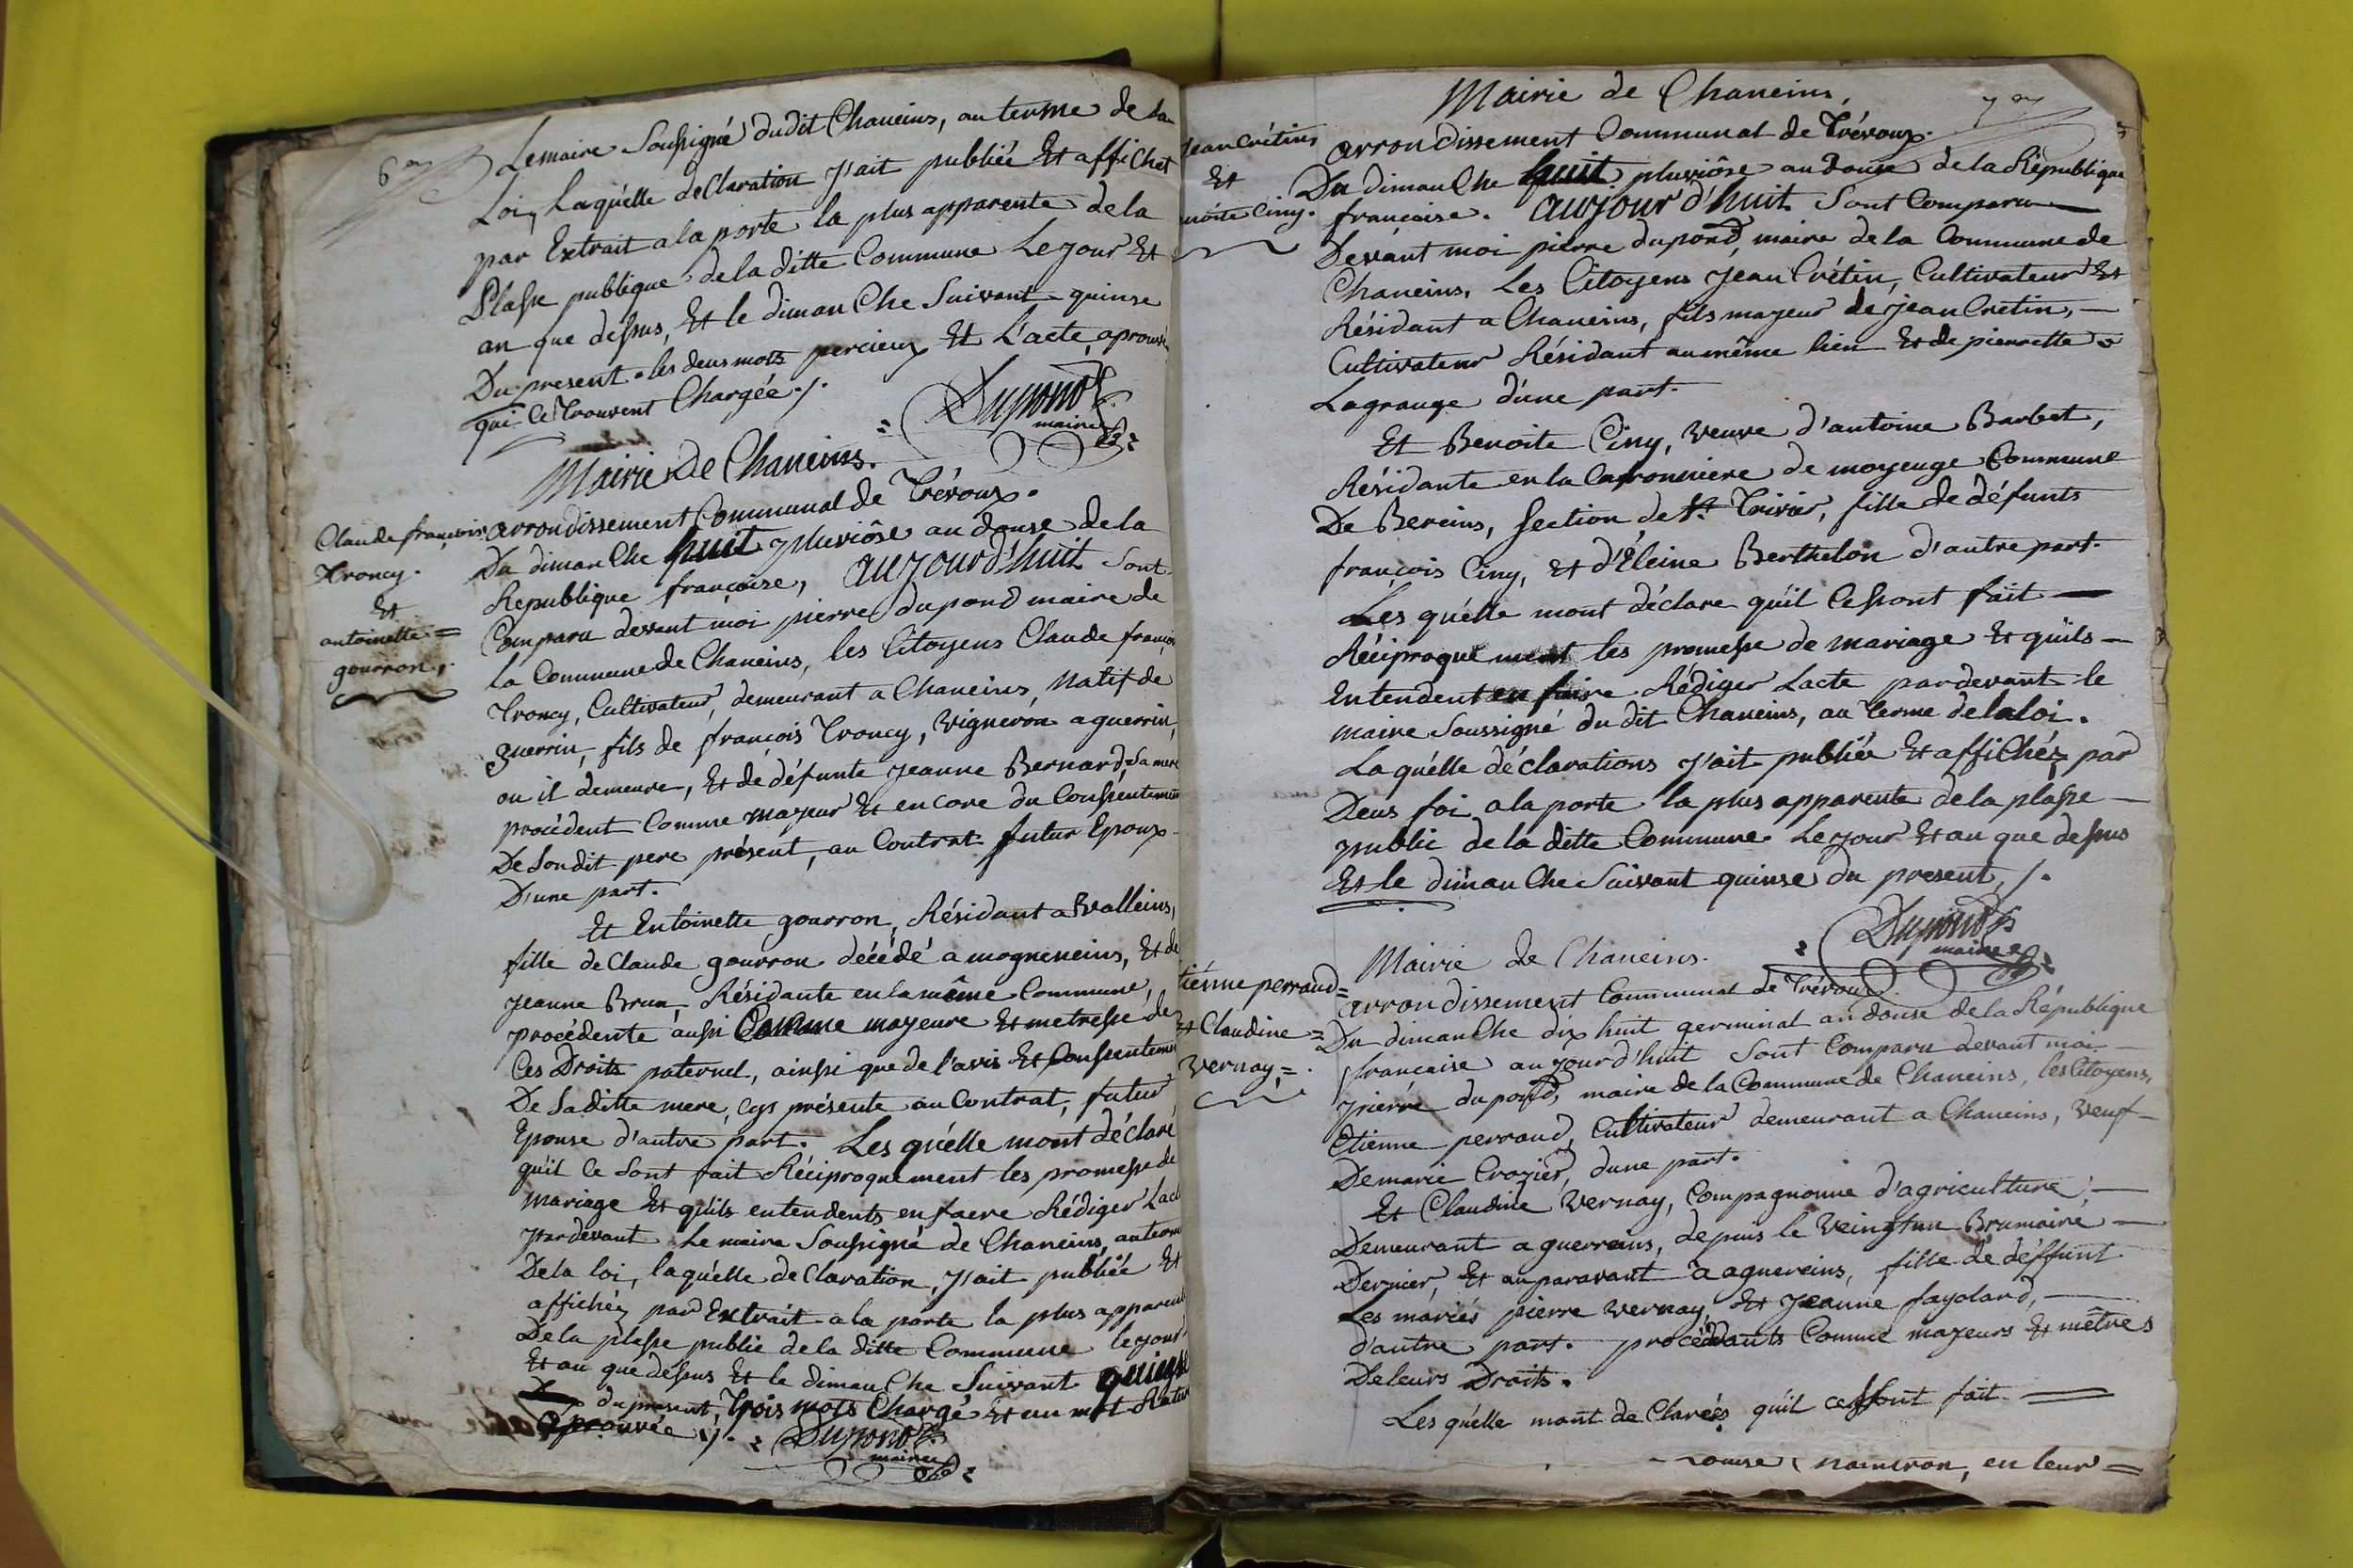 6me
Lemaire Soussigné dudit Chaneins, au terme de la
Loi, Laquélle declaration J'ait publiée Et affichet
par Extrait ala porte la plus apparente de la
Plasse publique dela ditte Commune Le jour Et
an que dessus, Et le dimanche Suivant quinse
Du present. les deus mots percieux Et L'acte, aprouvé
qui ce trouvent Chargée ./.
Dupond
maire
Mairie de Chaneins.
arrondissement Communal de Trévoux.
Claude françois
Troncy.
Et
antoinette =
gourron.
Du dimanche huit pluviôse an douse de la
Republique françoise, aujourd'huit Sont
Comparu devent moi pierre dupond maire de
la Commune de Chaneins, les Citoyens Claude françois
Troncy, Cultivateur, demeurant a Chaneins, Natif de
guerrin, fils de françois Troncy, Vigneron a guerrin,
ou il demeure, Et de défunte Jeanne Bernard, Sa mere
procédent Comme majeur Et encore du Consentement
De Sondit pere présent, au Contrat futur Epoux
D'une part.
Et Entoinette gourron, Résidant a Valleins,
fille de Claude gourron décédé a mogneneins, Et de
Jeanne Brun, Résidante en la même Commune,
procédente aussi Comme majeure Et metresse de
Ces Droits paternel, ainssi que de l'avis Et Consentement
De Saditte mere, cys présente au Contrat, futur
Epouse d'autre part. Les quélle mont déclaré
qu'il ce Sont fait Réciproquement les promesse de
mariage Et qu'ils entendents en faere Rédiger Lacte
pardevant Le maire Soussigné de Chaneins, auterme
Dela loi, laquélle declaration, J'ait publiée Et
affichéz par Extrait ala porte la plus apparente
De la plesse public dela ditte Commune le jour
Et an que dessus Et le dimanche Suivant quinse
du present, Trois mots Chargé Et un mot Raturé
aprouvée ./.
Dupond
maire
7me
Mairie de Chaneins,
arrondissement Communal de Trévoux.
Jean Crétin,
Et
noite Ciny.
Du dimanche huit pluviôse an Douse de la République
françaíse. aujour d'huit Sont Comparu
Devant moi pierre dupond, maire de la Commune de
Chaneins, Les Citoyens Jean Crétin, Cultivateur Et
Résidant a Chaneins, fils majeur de jean Cretin,
Cultivateur Résidant au même lieu Et de pierrette
Lagrange d'une part.
Et Benoite Ciny, veuve d'antoine Barbet,
Résidante en la Cafronniere de moyeuge Commune
De Bereins, Section de St Trivier, fille de défunts
françois Ciny, Et d'Eleine Berthelon d'autre part.
Les quélle mont déclare qu'il Cessont fait
Réciproquement les promesse de mariage Et qu'ils
Entendent en faire Rédiger Lacte pardevant le
maire Soussigné du dit Chaneins, au terme de la loi.
Laquélle déclarations J'ait publiée Et affichéz par
Deus foi a la porte la plus apparente de la plasse
public de la ditte Commune Le jour Et an que dessus
Et le dimanche Suivant quinse du present, ./.
Dupond
maire
Mairie de Chaneins.
arrondissement Communal de Trévoux.
tiénne perraud =
Et Claudine =
Vernay, =
Du dimanche dix huit germinal an douse de la République
française aujourd'huit Sont Comparu devant moi
pierre dupond, maire de la Commune de Chaneins, les Citoyens,
Etienne perraud, Cultivateur demeurant a Chaneins, Veuf
De marie Crozier, dune part.
Et Claudine Vernay, Compagnonne d'agriculture,
Demeurant a guerreins, depuis le Veingtun Brumaire
Dernier, Et auparavant a aguereins, fille de déffunt
Les mariés pierre Vernay, Et Jeanne fayolard,
d'autre part. procédants Comme majeurs Et mêtres
De leurs Droits.
Les quélle mont de Clarées qu'il cessont fait
en leur =